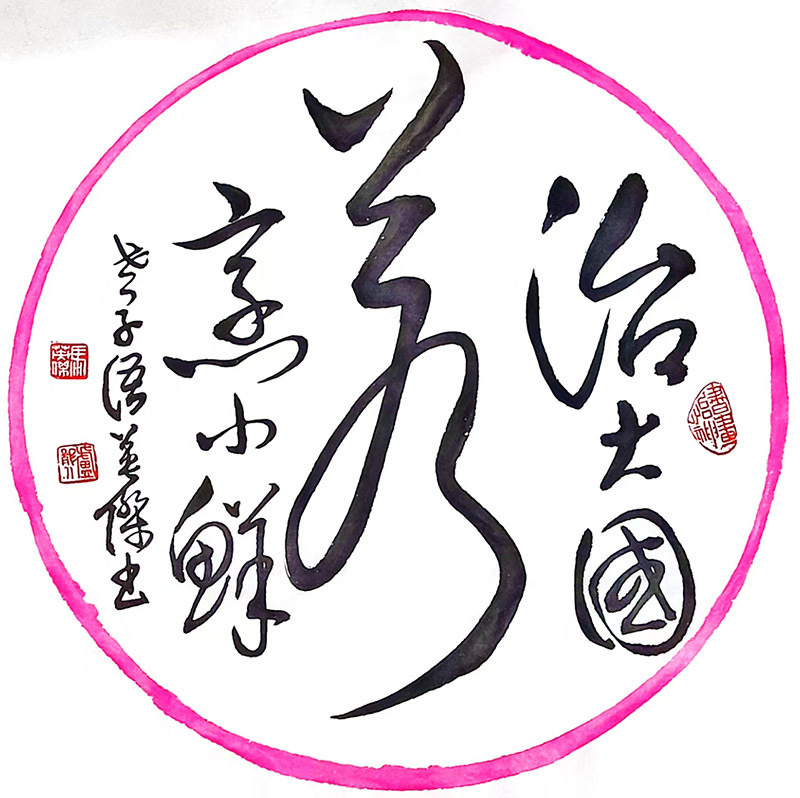 治大國
若
烹小鮮
老子語英傑書